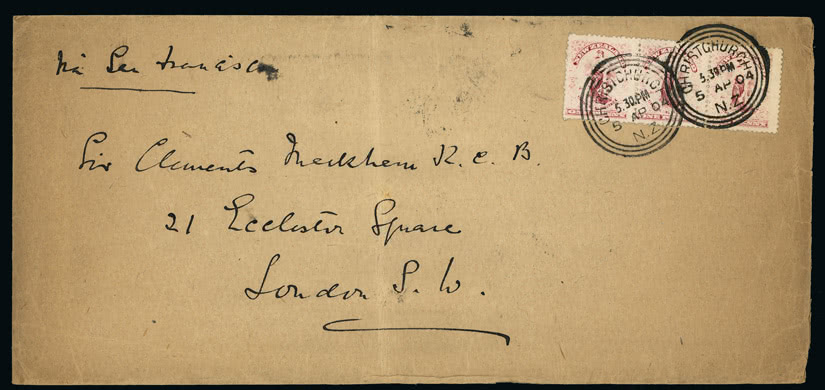 via San Francisco
CHRISTCHURCH
5.30.PM
5 AP 04
N.Z.
CHRISTCHURCH
5.30.PM
5 AP 04
N.Z.
Sir Clements Markham K.C.B.
21 Eccleston Square
London S.W.